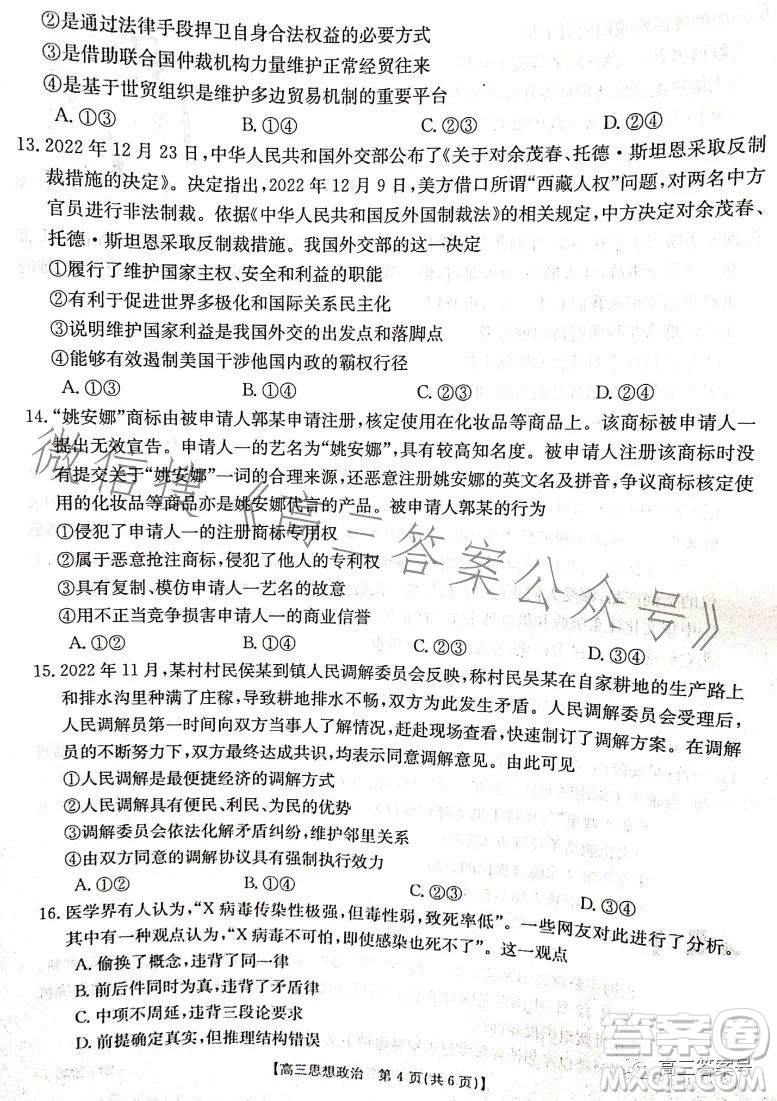 ②是通过法律手段捍卫自身合法权益的必要方式
③是借助联合国仲裁机构力量维护正常经贸往来
④是基于世贸组织是维护多边贸易机制的重要平台
A. ①③ B. ①④ C. ②③ D. ②④
13. 2022 年 12 月 23 日，中华人民共和国外交部公布了《关于对余茂春、托德·斯坦恩采取反制
裁措施的决定》。决定指出，2022 年 12 月 9 日，美方借口所谓“西藏人权”问题，对两名中方
官员进行非法制裁。依据《中华人民共和国反外国制裁法》的相关规定，中方决定对余茂春、
托德·斯坦恩采取反制裁措施。我国外交部的这一决定
①履行了维护国家主权、安全和利益的职能
②有利于促进世界多极化和国际关系民主化
③说明维护国家利益是我国外交的出发点和落脚点
④能够有效遏制美国干涉他国内政的霸权行径
A. ①③ B. ①④ C. ②③ D. ②④
14. “姚安娜”商标由被申请人郭某申请注册，核定使用在化妆品等商品上。该商标被申请人一
提出无效宣告。申请人一的艺名为“姚安娜”，具有较高知名度。被申请人注册该商标时没
有提交关于“姚安娜”一词的合理来源，还恶意注册姚安娜的英文名及拼音，争议商标核定使
用的化妆品等商品亦是姚安娜代言的产品。被申请人郭某的行为
①侵犯了申请人一的注册商标专用权
②属于恶意抢注商标，侵犯了他人的专利权
③具有复制、模仿申请人一艺名的故意
④用不正当竞争损害了申请人一的商业信誉
A. ①② B. ①④ C. ②③ D. ③④
15. 2022 年 11 月，某村村民侯某到镇人民调解委员会反映，称村民吴某在自家耕地的生产路上
和排水沟里种满了庄稼，导致耕地排水不畅，双方为此发生矛盾。人民调解委员会受理后，
人民调解员第一时间向双方当事人了解情况，赶赴现场查看，快速制订了调解方案。在调解
员的不断努力下，双方最终达成共识，均表示同意调解意见。由此可见
①人民调解是最便捷经济的调解方式
②人民调解具有便民、利民、为民的优势
③调解委员会依法化解矛盾纠纷，维护邻里关系
④由双方同意的调解协议具有强制执行效力
A. ①② B. ①④ C. ②③ D. ③④
16. 医学界有人认为，“X 病毒传染性极强，但毒性弱，致死率低”。一些网友对此进行了分析。
其中有一种观点认为，“X 病毒不可怕，即使感染也死不了”。这一观点
A. 偷换了概念，违背了同一律
B. 前后件不能同时为真，违背了矛盾律
C. 中项不周延，违背三段论要求
D. 前提确定真实，但推理结构错误
【高三思想政治 第 4 页(共 6 页)】
微信搜《高三答案公众号》
答案圈
高三答案号
MXQE.COM